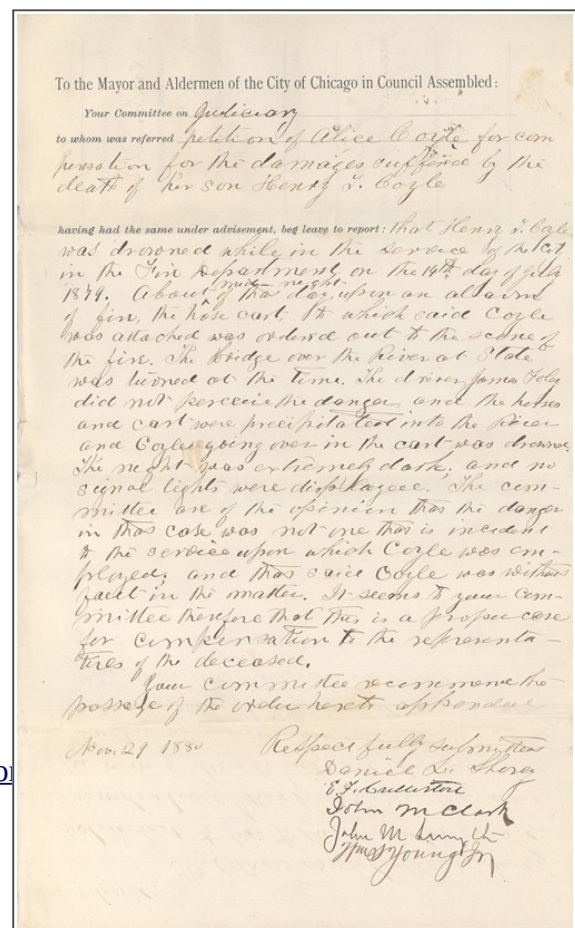 To the Mayor and Aldermen of the City of Chicago in Council Assembled:
Your Committee on Judiciary
to whom was referred petition of Alice Coyle for com
pensation for the damages suffered by the
death of her son Henry T. Coyle
having had the same under advisement, beg leave to report: that Henry T. Coyle
was drowned while in the service of the City
in the Fire Department on the 14th day of July
1879. About mid-night of that day, upon an alarm
of fire, the hose cart to which said Coyle
was attached was ordered out to the scene of
the fire. The bridge over the River at State
was turned at the time. The driver James Foley
did not perceive the danger, and the horses
and cart were precipitated into the River
and Coyle going over in the cart was drowned.
The night was extremely dark, and no
signal lights were displayed. The com-
mittee are of the opinion that the danger
in that case was not one that is incident
to the service upon which Coyle was em-
ployed; and that said Coyle was without
fault in the matter. It seems to your com-
mittee therefore that this is a proper case
for compensation to the representa-
tives of the deceased.
Your committee recommend the
passage of the order hereto appended
Nov. 29 1880 Respectfully submitted
Daniel L. Shorey
E. F. Cullerton
John M Clark
John M Smyth
Wm Young Jr